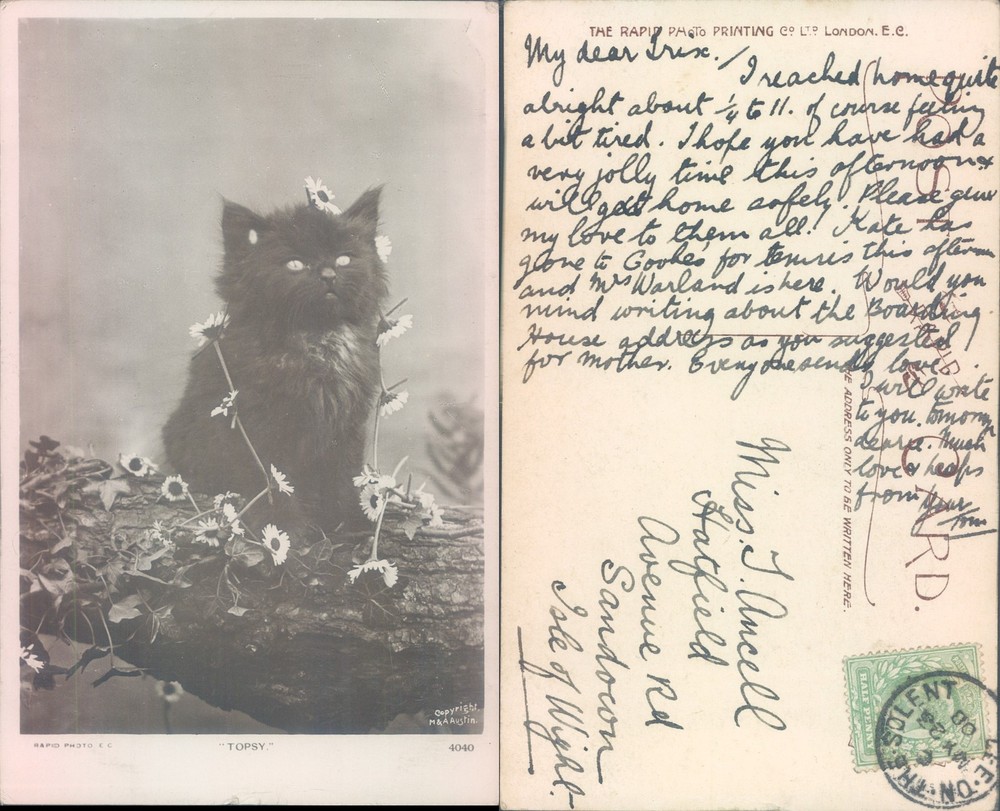 Copyright,
M&A Austin.
RAPID PHOTO E C
"TOPSY."
4040
THE RAPID PHOTO PRINTING CO LTD LONDON. E.C.
My dear Trix./
I reached home quite
alright about ¼ to 11. of course feeling
a bit tired. I hope you have had a
very jolly time this afternoon &
will get home safely. Please give
my love to them all. Kate has
gone to Cookes' for tennis this afternoon
and Mrs Warland is here. Would you
mind writing about the Boarding
House address as you suggested
for Mother. Everyone sends love
I will write
to you tomorrow
dearie. Much
love & heaps
from your
Tom
POST CARD.
THE ADDRESS ONLY TO BE WRITTEN HERE.
Miss. T. Ancell
Hatfield
Avenue Rd
Sandown
Isle of Wight.
HALF PENNY
LEE-ON-THE-SOLENT
MY 25